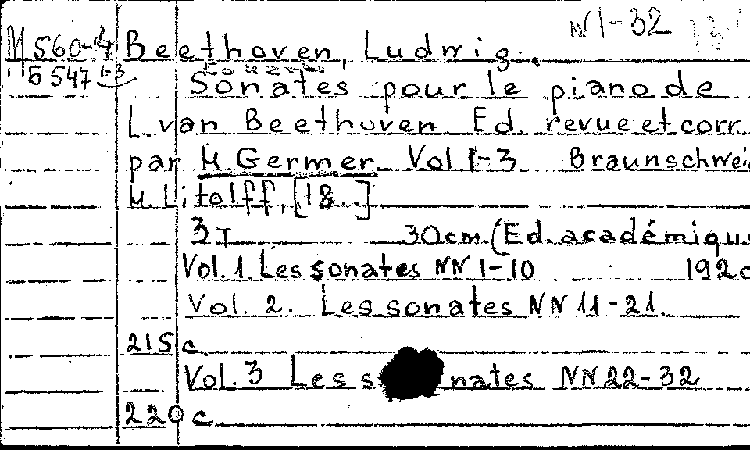 N 1-32
М 560-4 Beethoven, Ludwig.
Б 547 1-3
Sonates pour le piano de
L. van Beethoven Ed. revue et corr.
par H. Germer. Vol 1-3 Braunschwei
H. Litolff, [18..]
3т 30cm. (Ed. académiqu
Vol. 1. Les sonates NN 1-10 192c
Vol. 2. Les sonates NN 11-21.
215 c
Vol. 3 Les s nates NN 22-32
220 c